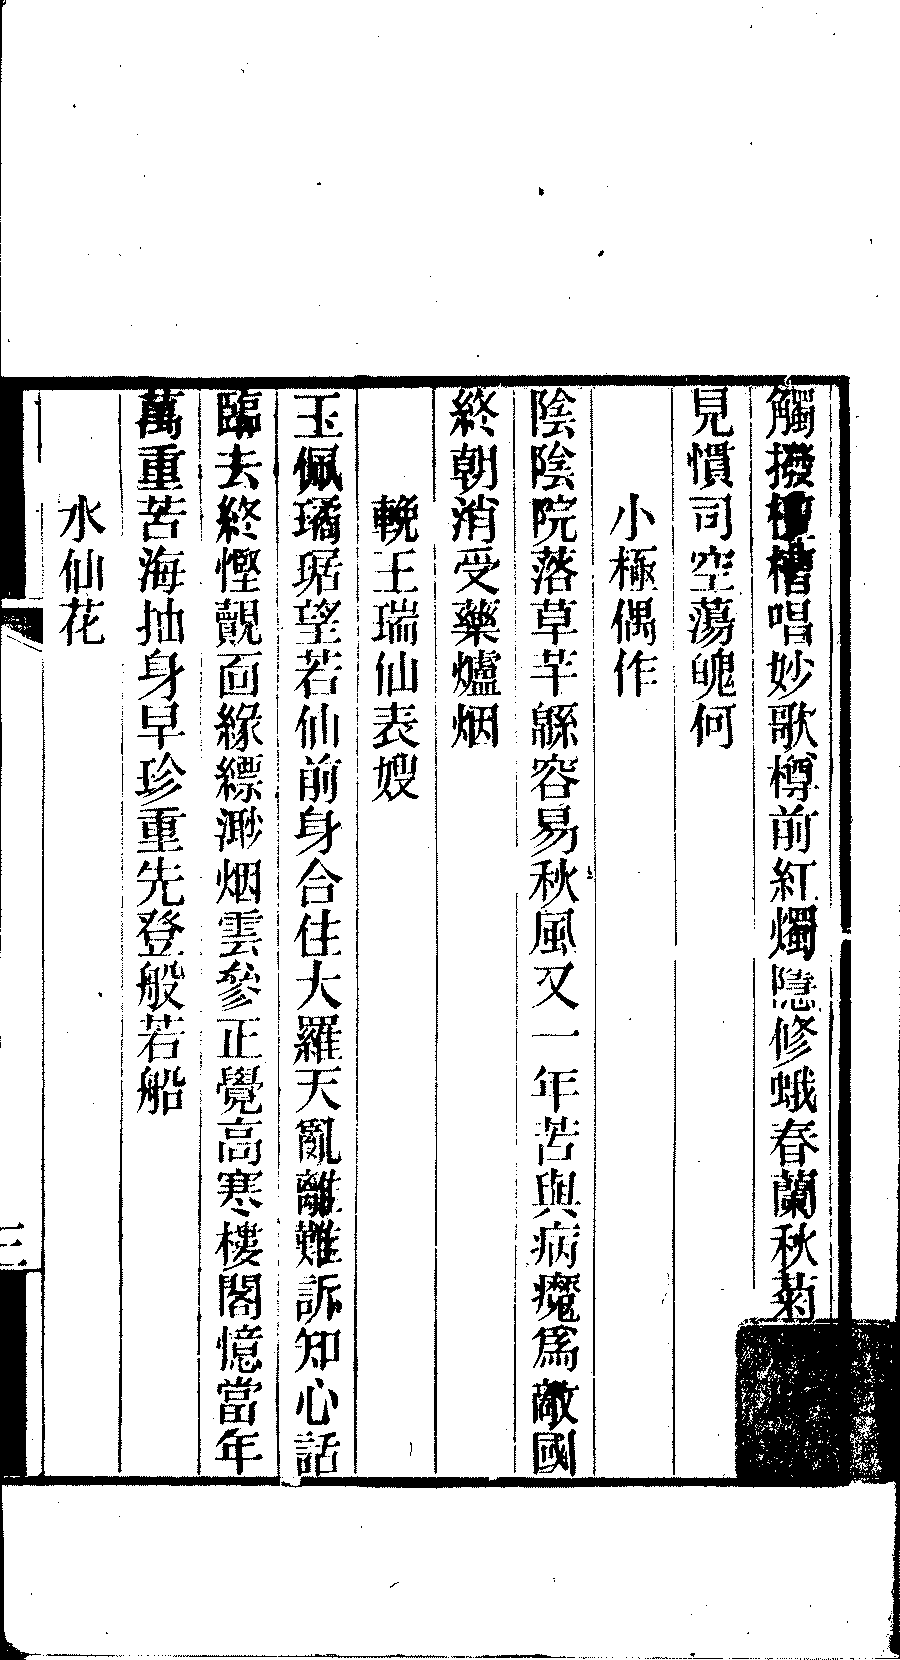 觸撥檀槽唱妙歌樽前紅燭隱修蛾春蘭秋菊
見慣司空蕩魄何
小極偶作
陰陰院落草芊緜容易秋風又一年苦與病魔爲敵國
終朝消受藥爐烟
輓王瑞仙表嫂
玉佩璚琚望若仙前身合住大羅天亂離難訴知心話
臨去終慳覿面緣縹渺烟雲參正覺高寒樓閣憶當年
萬重苦海抽身早珍重先登般若船
水仙花
三